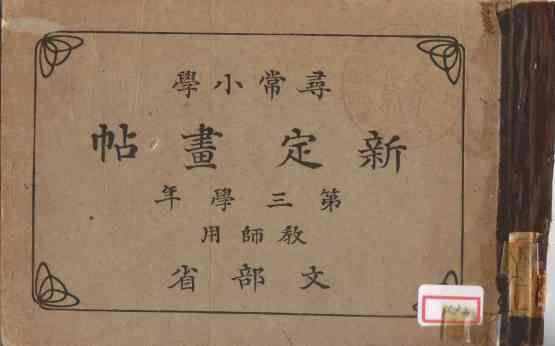 尋常小學
新定畫帖
第三學年
敎師用
文部省